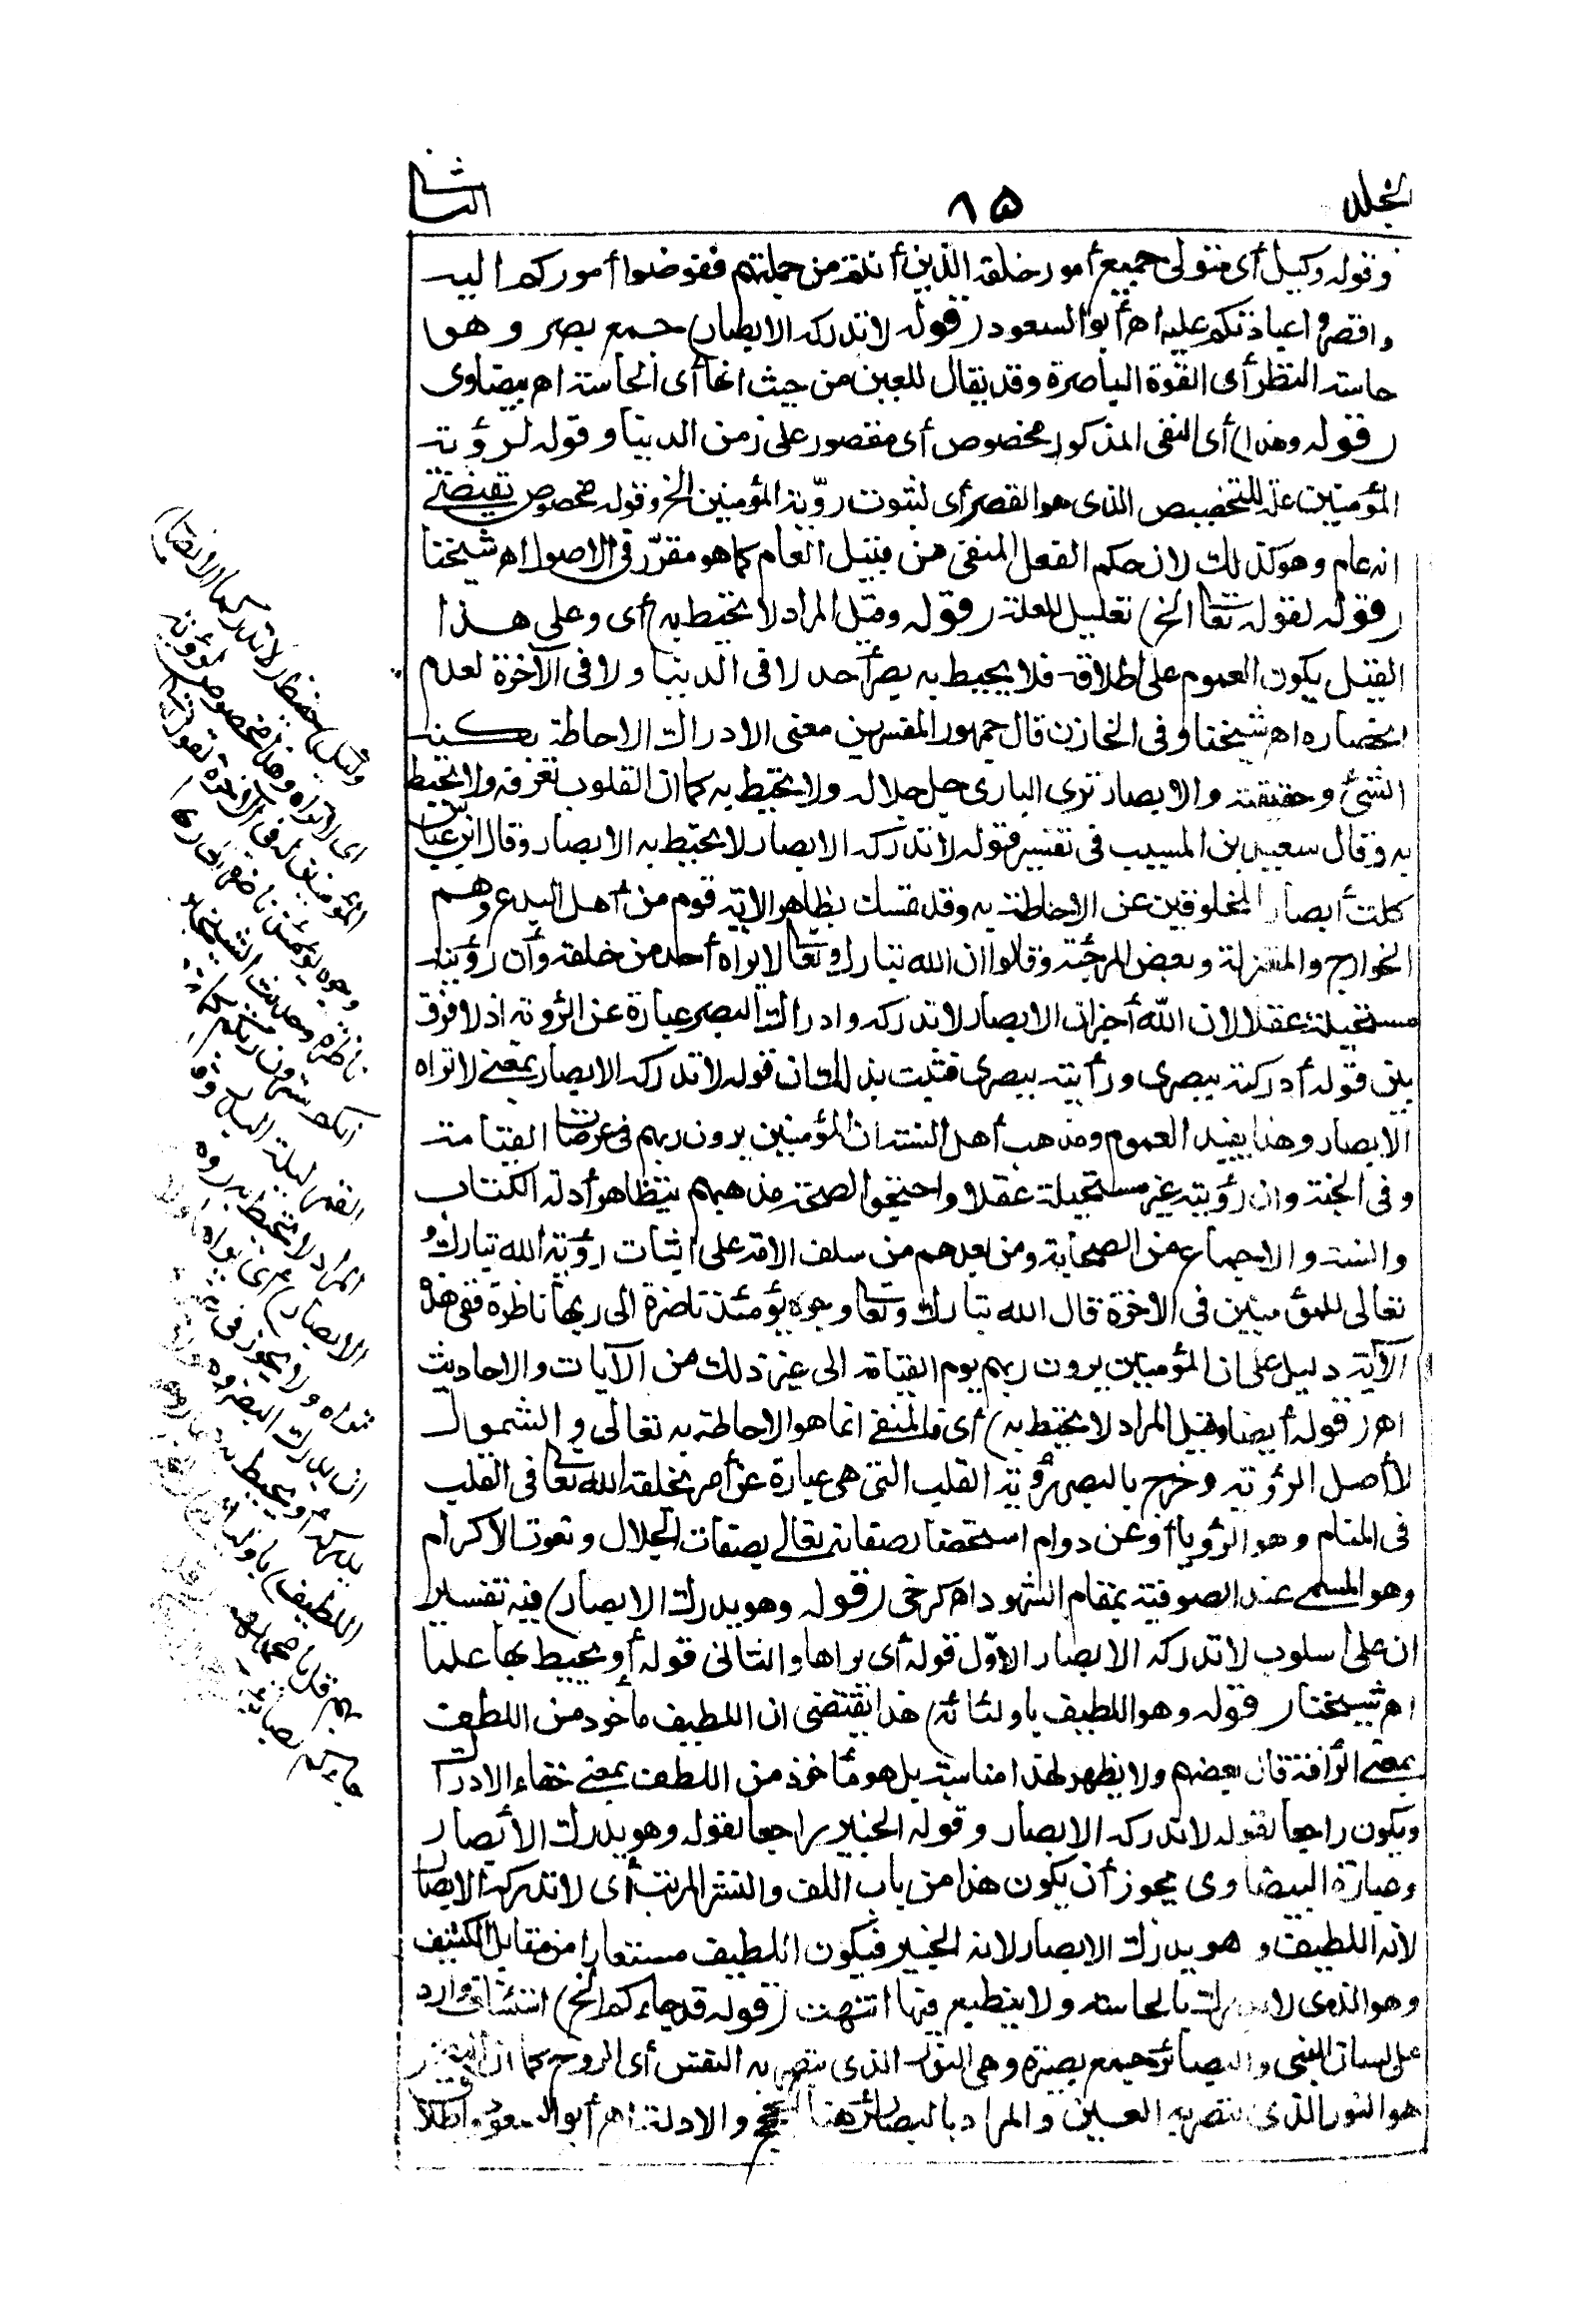 المجلد
٨٥
الثانى
وقوله وكيل أى متولى جميع أمور خلقه الذين أنتم من جملتهم ففوضوا أموركم اليه
واقصروا عبادتكم عليه اهـ أبو السعود (قوله لا تدركه الابصار) جمع بصر وهو
حاسة النظر أى القوة الباصرة وقد يقال للعين من حيث انها أى الحاسة اهـ بيضاوى
(قوله وهذا) أى النفى المذكور مخصوص أى مقصور على زمن الدنيا وقوله لرؤية
المؤمنين علة للتخصيص الذى هو القصر أى لثبوت رؤية المؤمنين الخ وقوله مخصوص يقتضى
انه عام وهو كذلك لان حكم الفعل المنفى من قبيل العام كما هو مقرر فى الاصول اهـ شيخنا
(قوله لقوله تعا الخ) تعليل للعلة (قوله وقيل المراد لا تحيط به) أى وعلى هذا
القيل يكون العموم على اطلاقه فلا يحيط به بصر أحد لا فى الدنيا ولا فى الآخرة لعدم
انحصاره اهـ شيخنا وفى الخازن قال جمهور المفسرين معنى الادراك الاحاطة بكنه
الشئ وحقيقته والابصار ترى البارى جل جلاله ولا تحيط به كما ان القلوب تعرفه ولا تحيط
به وقال سعيد بن المسيب فى تفسير قوله لا تدركه الابصار لا تحيط به الابصار وقال ابن عباس
كلت أبصار المخلوقين عن الاحاطة به وقد تمسك بظاهر الاية قوم من أهل البدع وهم
الخوارج والمعتزلة وبعض المرجئة وقالوا ان الله تبارك وتعا لا يراه أحد من خلقه وأن رؤيته
مستحيلة عقلا لان الله أخبر ان الابصار لا تدركه وادراك البصر عبارة عن الرؤية اذ لا فرق
بين قوله أدركته ببصرى ورأيته ببصرى فثبت بذلك ان قوله لا تدركه الابصار بمعنى لا تراه
الابصار وهذا يفيد العموم ومذهب أهل السنة ان المؤمنين يرون ربهم فى عرصات القيامة
وفى الجنة وان رؤيته غير مستحيلة عقلا واحتجوا لصحة مذهبهم بتظاهر أدلة الكتاب
والسنة والاجماع من الصحابة ومن بعدهم من سلف الامة على اثبات رؤية الله تبارك و
تعالى للمؤمنين فى الاخرة قال الله تبارك وتعا وجوه يومئذ ناضرة الى ربها ناظرة ففى هذه
الآية دليل على ان المؤمنين يرون ربهم يوم القيامة الى غير ذلك من الآيات والاحاديث
اهـ (قوله أيضا وقيل المراد لا تحيط به) أى فالمنفى انما هو الاحاطة به تعالى والشمول
لا أصل الرؤية وخرج بالبصر رؤية القلب التى هى عبارة عن أمر يخلقه الله تعا فى القلب
فى المنام وهو الرؤيا أو عن دوام استحضار صفاته تعالى بصفات الجلال ونعوت الاكرام
وهو المسمى عند الصوفية بمقام الشهود اهـ كرخى (قوله وهو يدرك الابصار) فيه تفسير
ان على أسلوب لا تدركه الابصار الاول قوله أى يراها والثانى قوله أو يحيط بها علما
اهـ شيخنا (قوله وهو اللطيف باوليائه) هذا يقتضى ان اللطيف مأخوذ من اللطف
بمعنى الرأفة قال بعضهم ولا يظهر لهذا مناسبة بل هو مأخوذ من اللطف بمعنى خفاء الادراك
ويكون راجعا لقوله لا تدركه الابصار وقوله الخبير راجعا لقوله وهو يدرك الأبصار
وعبارة البيضاوى يجوز أن يكون هذا من باب اللف والنشر المرتب أى لا تدركه الابصار
لانه اللطيف وهو يدرك الابصار لانه الخبير فيكون اللطيف مستعارا من مقابل الكثيف
وهو الذى لا يدرك بالحاسة ولا ينطبع فيها انتهت (قوله قد جاءكم الخ) استئناف وارد
على لسان النبى والبصائر جمع بصيرة وهى النور الذى تبصر به النفس أى الروح كما ان البصر
هو النور الذى تبصر به العين والمراد بالبصائر هنا الحجج والادلة اهـ أبو السعود واطلاق
وكيل) حفيظ (لا تدركه الابصار)
اى لا تراه وهذا مخصوص لرؤية
المؤمنين له فى الآخرة لقوله تعا
وجوه يومئذ ناضرة الى ربها
ناظرة وحديث الشيخين
انكم سترون ربكم كما ترون
القمر ليلة البدر وقيل
المراد لا تحيط به (وهو
الابصار) اى يراها ولا
تراه ولا يجوز فى غيره
ان يدرك البصر وهو لا
يدركه أو يحيط به علما (وهو
اللطيف) باوليائه
قل يا محمد لهم (قد
جاءكم بصائر